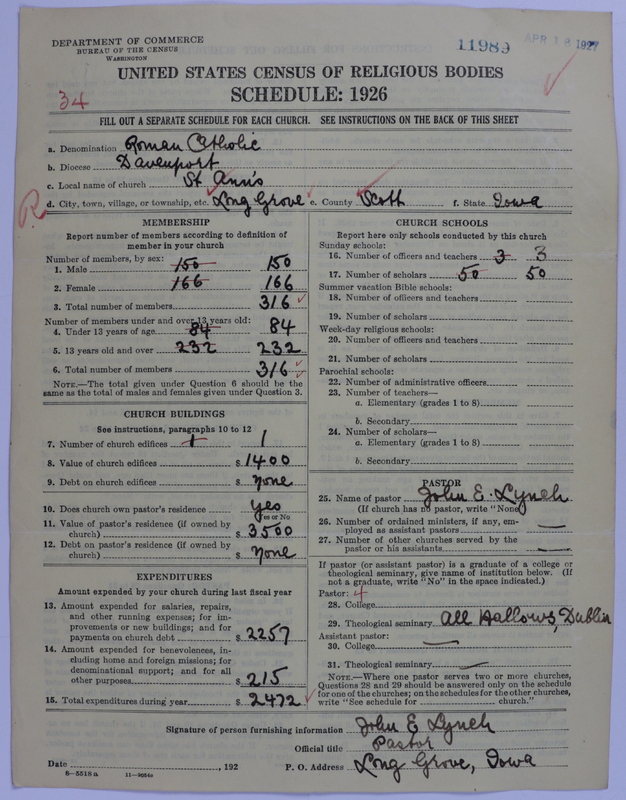 DEPARTMENT OF COMMERCE
BUREAU OF THE CENSUS
WASHINGTON
11989
APR 18 1927
UNITED STATES CENSUS OF RELIGIOUS BODIES
SCHEDULE: 1926
34
FILL OUT A SEPARATE SCHEDULE FOR EACH CHURCH. SEE INSTRUCTIONS ON THE BACK OF THIS SHEET
a. Denomination Roman Catholic
b. Diocese Davenport
c. Local name of church St Ann's
d. City, town, village, or township, etc. Long Grove e. County Scott f. State Iowa
R
MEMBERSHIP
Report number of members according to definition of
member in your church
Number of members, by sex:
1. Male 150 150
2. Female 166 166
3. Total number of members 316
Number of members under and over 13 years old:
4. Under 13 years of age 84 84
5. 13 years old and over 232 232
6. Total number of members 316
NOTE.—The total given under Question 6 should be the
same as the total of males and females given under Question 3.
CHURCH BUILDINGS
See instructions, paragraphs 10 to 12
7. Number of church edifices 1 1
8. Value of church edifices $ 1400
9. Debt on church edifices $ none
10. Does church own pastor's residence yes
Yes or No
11. Value of pastor's residence (if owned by
church) $ 3500
12. Debt on pastor's residence (if owned by
church) $ none
EXPENDITURES
Amount expended by your church during last fiscal year
13. Amount expended for salaries, repairs,
and other running expenses; for im-
provements or new buildings; and for
payments on church debt $ 2257
14. Amount expended for benevolences, in-
cluding home and foreign missions; for
denominational support; and for all
other purposes $ 215
15. Total expenditures during year $ 2472
CHURCH SCHOOLS
Report here only schools conducted by this church
Sunday schools:
16. Number of officers and teachers 3 3
17. Number of scholars 50 50
Summer vacation Bible schools:
18. Number of officers and teachers
19. Number of scholars
Week-day religious schools:
20. Number of officers and teachers
21. Number of scholars
Parochial schools:
22. Number of administrative officers
23. Number of teachers—
a. Elementary (grades 1 to 8)
b. Secondary
24. Number of scholars—
a. Elementary (grades 1 to 8)
b. Secondary
PASTOR
25. Name of pastor John E. Lynch
(If church has no pastor, write "None")
26. Number of ordained ministers, if any, em-
ployed as assistant pastors —
27. Number of other churches served by the
pastor or his assistants —
If pastor (or assistant pastor) is a graduate of a college or
theological seminary, give name of institution below. (If
not a graduate, write "No" in the space indicated.)
Pastor: 4
28. College
29. Theological seminary All Hallows, Dublin
Assistant pastor:
30. College —
31. Theological seminary —
NOTE.—Where one pastor serves two or more churches,
Questions 28 and 29 should be answered only on the schedule
for one of the churches; on the schedules for the other churches,
write "See schedule for church."
Signature of person furnishing information John E Lynch
Official title Pastor
Date , 192 P. O. Address Long Grove, Iowa
8-5518 a 11-9054